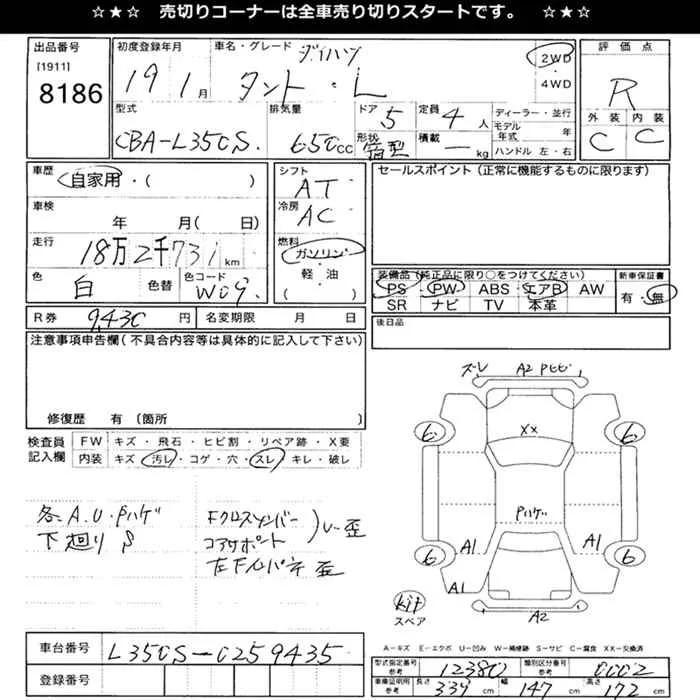 ☆★☆ 売切りコーナーは全車売り切りスタートです。 ☆★☆
出品番号
[1911]
8186
初度登録年月
19 1月
車名・グレード ダイハツ
タント・L
2WD
・
4WD
評価点
R
外装 内装
C C
型式
CBA-L350S.
排気量
650cc
ドア 5
形状 箱型
定員 4人
積載 ー kg
ディーラー・並行
モデル年式 年
ハンドル 左・右
車歴
自家用・( )
車検
年 月(日)
走行
18万2千731km
色
白 色替
色コード
W09.
シフト
AT
冷房
AC
燃料
ガソリン
軽・油
( )
セールスポイント(正常に機能するものに限ります)
装備品(純正品に限り○をつけてください)
PS PW ABS エアB AW
SR ナビ TV 本革
新車保証書
有・無
R券 9,430円
名変期限 月 日
後日品
注意事項申告欄(不具合内容等は具体的に記入して下さい)
修復歴 有〔箇所 〕
検査員記入欄
FW キズ・飛石・ヒビ割・リペア跡・X要
内装 キズ・汚レ・コゲ・穴・スレ・キレ・破レ
各A.U.Pハゲ
下廻りS
FクロスメンバーU・歪
コアサポート
左下
歪
ズレ A2 Pヒビ
XX
Pハゲ
6 6
6 6
A1 A1
A1
A2
kit
スペア
A-キズ E-エクボ U-凹み W-補修跡 S-サビ C-腐食 XX-交換済
車台番号 L350S-0259435
登録番号
型式指定番号 参考 12380
類別区分番号 参考 0002
車庫証明用 参考 長さ 339cm 幅 147cm 高さ 172cm